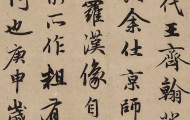 代王齊翰輩
余仕京師
羅漢像自
所作粗有
何也庚申歲